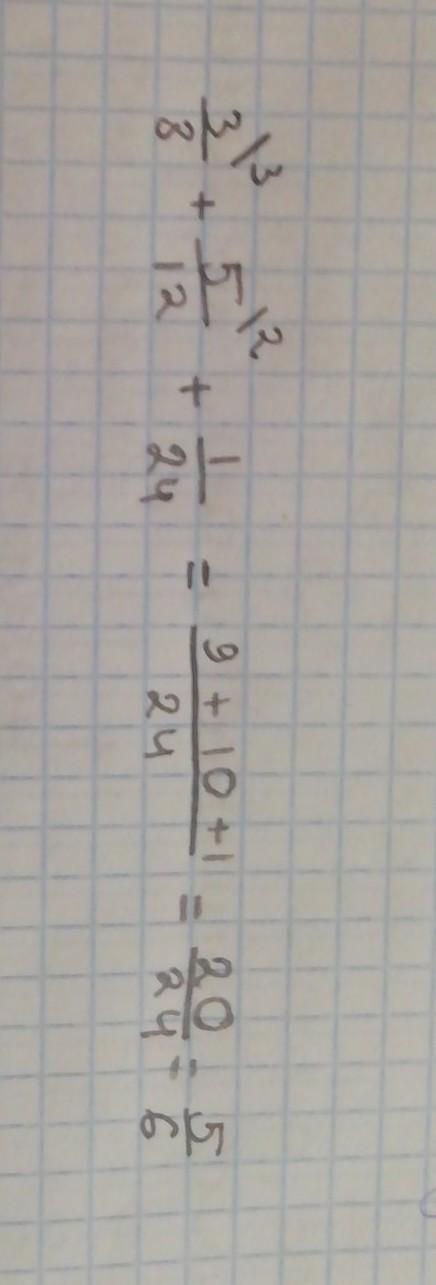 3/8 \3 + 5/12 \2 + 1/24 = (9 + 10 + 1)/24 = 20/24 = 5/6